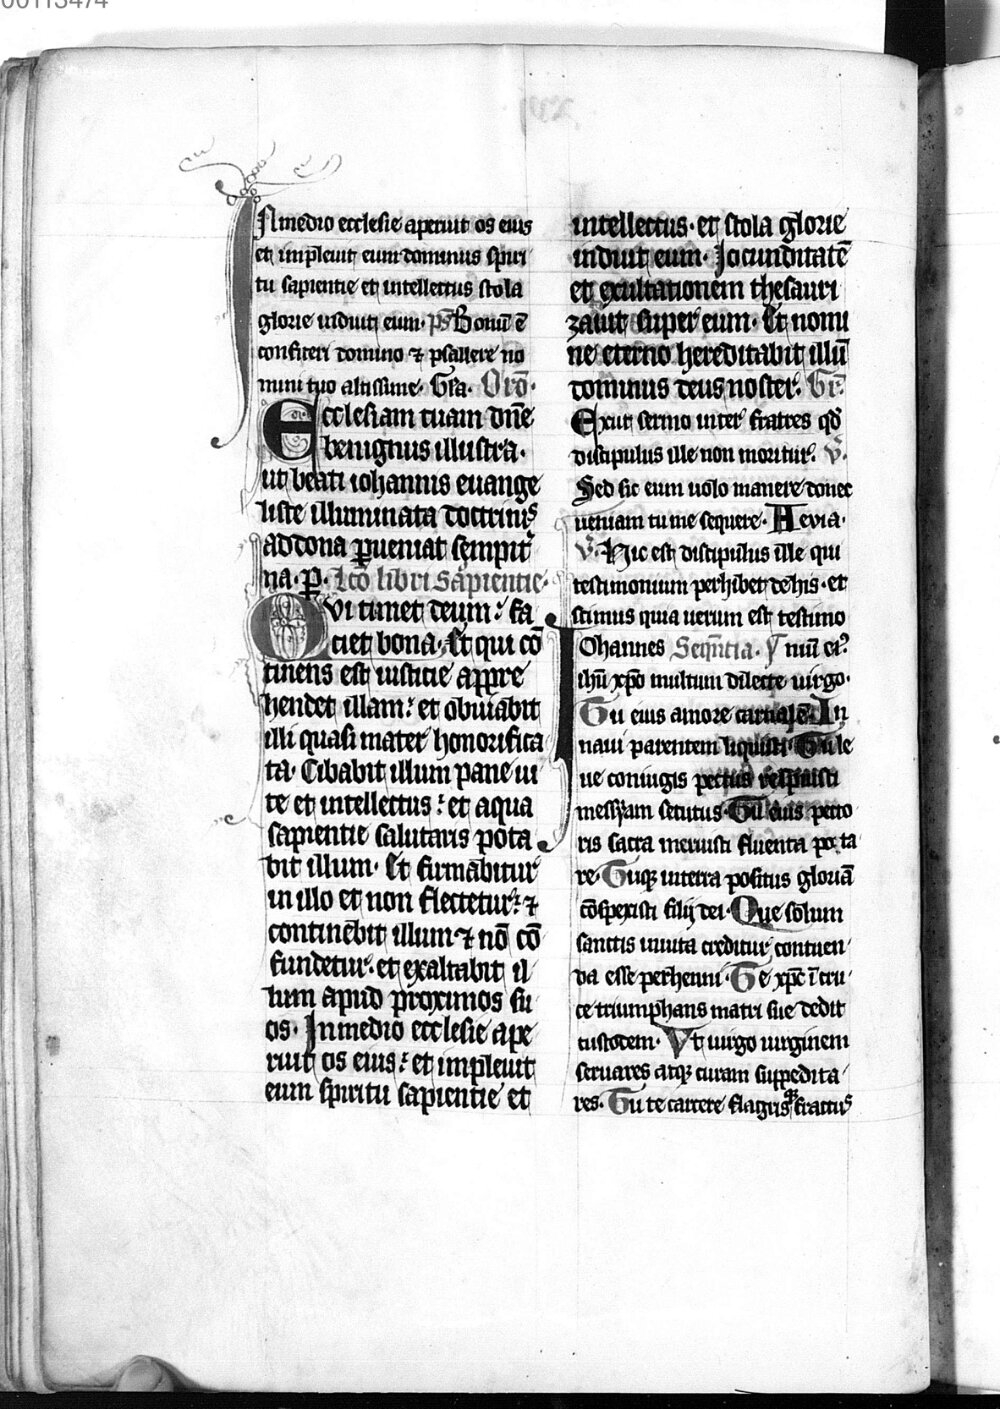 00113474
IN medio ecclesie aperuit os eius
et impleuit eum dominus spiri
tu sapientie et intellectus stola
glorie induit eum· ps̄ Bonū ē
confiteri domino ⁊ psallere no
mini tuo altissime· Gl̄a· Orō·
Ecclesiam tuam dn̄e
benignus illustra·
ut beati iohannis euange
liste illuminata doctrinis
ad dona ꝑueniat sempit̄
na· P· Lc̄o libri Sapientie·
Qvi timet deum: fa
ciet bona· Et qui cō
tinens est iusticie appre
hendet illam: et obuiabit
illi quasi mater honorifica
ta· Cibabit illum pane ui
te et intellectus: et aqua
sapientie salutaris pota
bit illum· Et firmabitur
in illo et non flectetur: ⁊
continēbit illum ⁊ nō cō
fundetur· et exaltabit il
lum apud proximos su
os· In medio ecclesie ape
ruit os eius: et impleuit
eum spiritu sapientie et
intellectus· et stola glorie
induit eum· Jocunditatē
et exultationem thesauri
zauit super eum· Et nomi
ne eterno hereditabit illū
dominus deus noster· Gr̄·
Exiit sermo inter fratres qd̄
discipulus ille non moritur· V̄·
Sed sic eum uolo manere donec
ueniam tu me sequere· Aeuia·
V̄· Hic est discipulus ille qui
testimonium perhibet de his· et
scimus quia uerum est testimo
IOhannes Seqn̄tia· niū ei?
ihū xp̄o multum dilecte uirgo·
Tu eius amore carnalē· In
naui parentem liquisti· Tu le
ue coniugis pectus respuisti
messyam secutus· Tu eius pecto
ris sacra meruisti fluenta pota
re· Tuqꝫ in terra positus gloriā
cōspexisti filij dei· Que solum
sanctis in uita creditur contuen
da esse perhenni· Te xp̄c ī cru
ce triumphans matri sue dedit
custodem· Vt uirgo uirginem
seruares atqꝫ curam suppedita
res· Tu te carcere flagrisqꝫ fractus